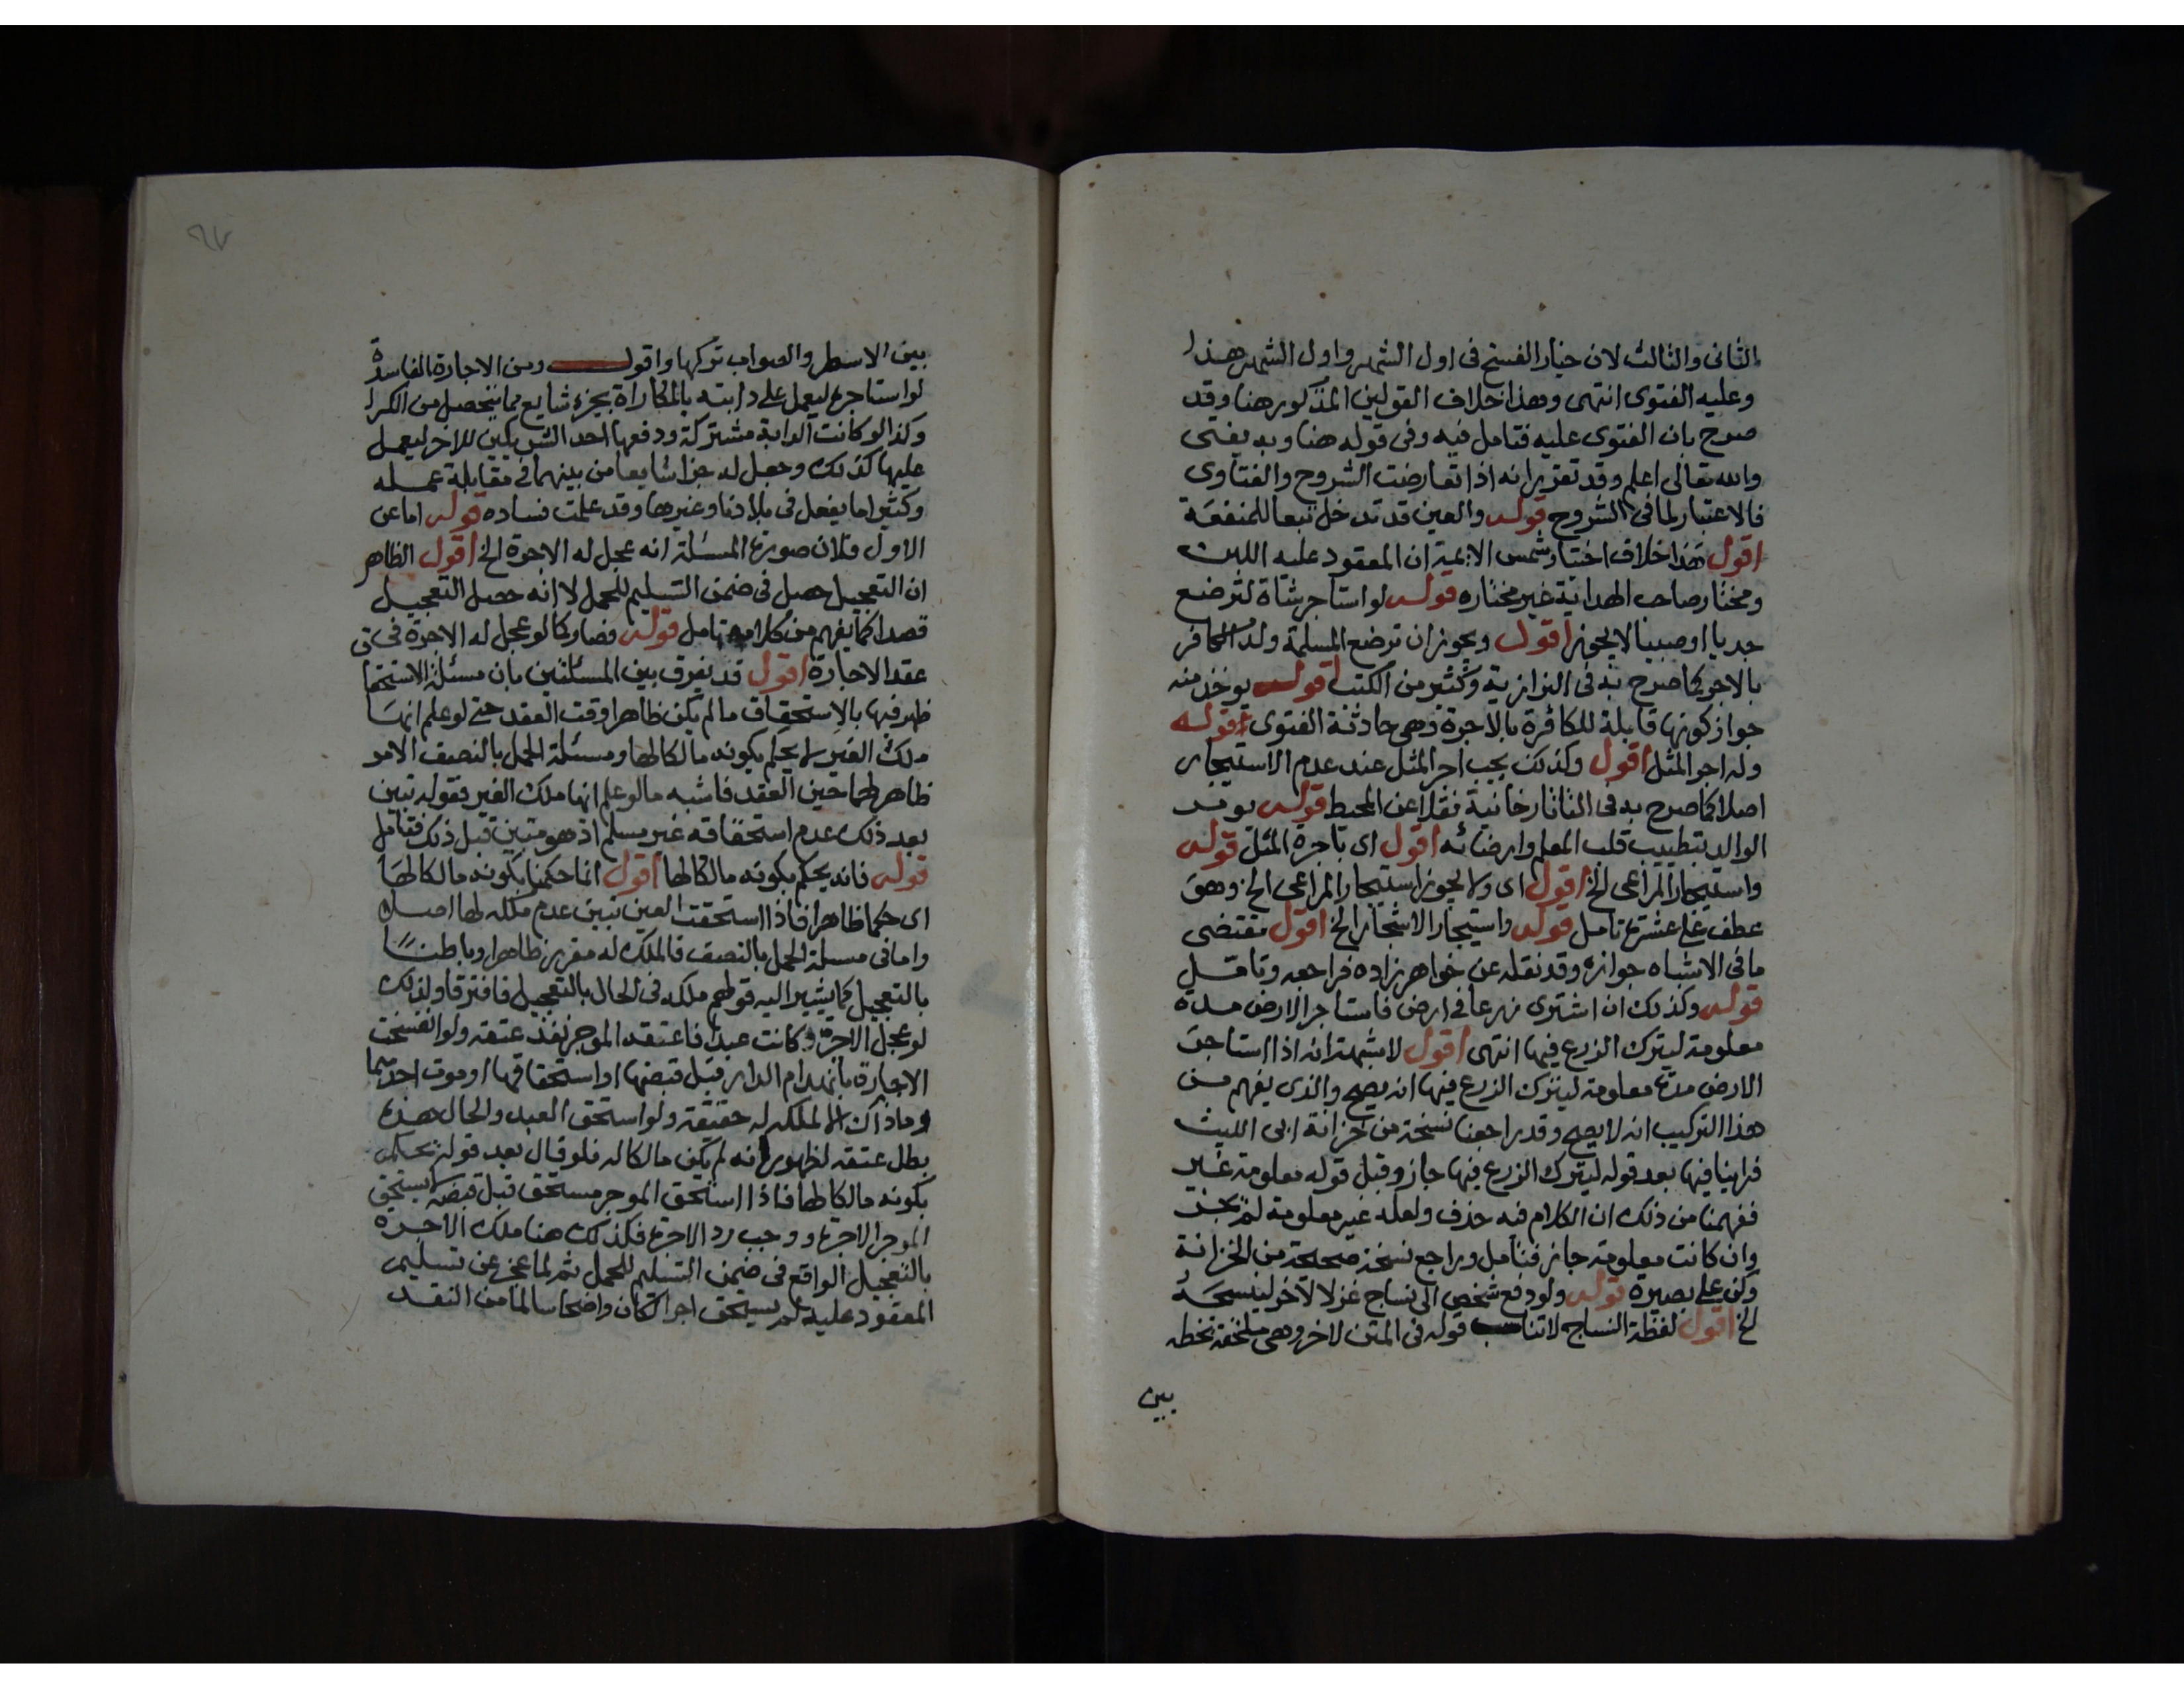 الثانى والثالث لان خيار الفسخ فى اول الشهر واول الشهر هذا
وعليه الفتوى انتهى وهذا خلاف القولين المذكور هنا وقد
صرح بان الفتوى عليه فتامل فيه وفى قوله هنا وبه يفتى
والله تعالى اعلم وقد تقرر انه اذا تعارضت الشروح والفتاوى
فالاعتبار لما فى الشروح قوله والعين قد تدخل تبعا للمنفعة
اقول هذا خلاف اختيار شمس الايمة ان المعقود عليه اللبن
ومختار صاحب الهداية غير مختاره قوله لو استاجر شاة لترضع
جديا او صبيا لا يجوز اقول ويجوز ان ترضع المسلمة ولد الكافر
بالاجر كما صرح به فى البزازية وكثير من الكتب اقول يوخذ منه
جواز كونها قابلة للكافرة بالاجرة وهى حادثة الفتوى قوله
وله اجر المثل اقول وكذلك يجب اجر المثل عند عدم الاستيجار
اصلا كما صرح به فى التاتارخانية نقلا عن المحيط قوله يومر
الوالد بتطييب قلب المعلم وارضائه اقول اى باجرة المثل قوله
واستيجار المراعى الخ اقول اى ولا يجوز استيجار المراعى الخ وهو
عطف على عشرة تامل قوله واستيجار الاشجار الخ اقول تقتضى
ما فى الاشباه جوازه وقد نقله عن خواهر زاده فراجعه وتامل
قوله وكذلك ان اشترى زرعا فى ارض فاستاجر الارض مدة
معلومة ليترك الزرع فيها انتهى اقول لا شبهة انه اذا استاجر
الارض مدة معلومة ليترك الزرع فيها انه يصح والذى يفهم من
هذا التركيب انه لا يصح وقد راجعنا نسخة من خزانة ابى الليث
فراينا فيها بعد قوله ليترك الزرع فيها جاز وقبل قوله معلومة غير
ففهمنا من ذلك ان الكلام فيه حذف ولعله غير معلومة لم يجز
وان كانت معلومة جاز فتامل وراجع نسخة صحيحة من الخزانة
وكن على بصيرة قوله ولو دفع شخص الى نساج غزلا لاخر لينسجه
الخ اقول لفظة النساج لا تناسب قوله فى المتن لاخر وهى ملحقة بخطه
بين
٩٧
بين الاسطر والصواب تركها واقول ومن الاجارة الفاسدة
لو استاجره ليعمل على دابته بالمكاراة بجزء شايع مما يتحصل من الكرا
وكذا لو كانت الدابة مشتركة ودفعها احد الشريكين للاخر ليعمل
عليها كذلك وجعل له جزا شايعا من بينهما فى مقابلة عمله
وكثيرا ما يفعل فى بلادنا وغيرها وقد علمت فساده قوله اما عن
الاول فلان صورة المسئلة انه عجل له الاجرة الخ اقول الظاهر
ان التعجيل حصل فى ضمن التسليم للحمل لا انه حصل التعجيل
قصدا كما يفهم من كلامه تامل قوله فصار كما لو عجل له الاجرة فى
عقد الاجارة اقول قد يفرق بين المسئلتين بان مسئلة الاستحقا
ظهر فيها بالاستحقاق ما لم يكن ظاهرا وقت العقد حتى لو علم انها
ملك الغير لا يحكم بكونه مالكا لها ومسئلة الحمل بالنصف الامر
ظاهر لهما حين العقد فاشبه ما لو علم انها ملك الغير فقوله تبين
بعد ذلك عدم استحقاقه غير مسلم اذ هو متبين قبل ذلك فتامل
قوله فانه يحكم بكونه مالكا لها اقول انما حكمنا بكونه مالكا لها
اى حكما ظاهرا فاذا استحقت العين تبين عدم ملكه لها اصلا
واما فى مسئلة الحمل بالنصف فالملك له متقرر ظاهرا وباطنا
بالتعجيل كما يشير اليه قولهم ملكه فى الحال بالتعجيل فافترقا ولذلك
لو عجل الاجرة وكانت عبدا فاعتقه الموجر نفذ عتقه ولو انفسخت
الاجارة بانهدام الدار قبل قبضها او استحقاقها او موت احدهما
وما ذاك الا لملكه له حقيقة ولو استحق العبد والحال هذه
بطل عتقه لظهور انه لم يكن مالكا له فلو قال بعد قوله يحكم
بكونه مالكا لها فاذا استحق الموجر مستحق قبل قبضه لا يستحق
الموجر الاجرة ووجب رد الاجرة فكذلك هنا ملك الاجرة
بالتعجيل الواقع فى ضمن التسليم للحمل ثم لما عجز عن تسليم
المعقود عليه لم يستحق اجرا لكان واضحا سالما من النقد